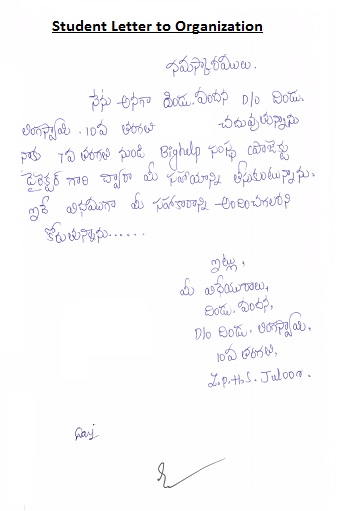 Student Letter to Organization
నమస్కారములు.
నేను అనగా దిండు. వందన D/o దిండు.
లింగస్వామి. 10వ తరగతి చదువుతున్నాను
నాకు 7వ తరగతి నుండి Bighelp సంస్థ
డైరెక్టర్ గారి ద్వారా మీ సహాయాన్ని తీసుకుంటున్నాను.
ఇదే విధముగా మీ సహకారాన్ని అందించగలరని
కోరుతున్నాను......
ఇట్లు,
మీ విధేయురాలు,
దిండు. వందన,
D/o దిండు. లింగస్వామి,
10వ తరగతి,
Z.P.H.S. Juloor.